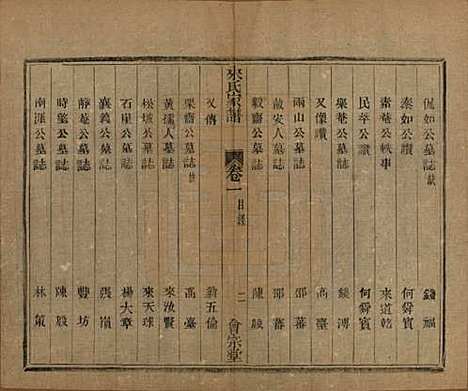 侃如公墓誌 錢福
泰如公讚 何舜賓
素菴公軼事 來道乾
民卒公讚 何舜賓
聚菴公墓誌 錢溥
又像讚 高臺
兩山公墓誌 邵蕃
敬安人墓誌 邵蕃
毅齋公墓誌 陳殷
來氏家譜 卷一 目錄 二 會宗堂
又傳 翁五倫
栗齋公墓誌 高臺
黃孺人墓誌 來汝賢
松坡公墓誌 來天球
石厓公墓誌 楊大章
襄義公墓誌 張嵿
靜菴公墓誌 豐坊
時菴公墓誌 陳殷
南滙公墓誌 林策